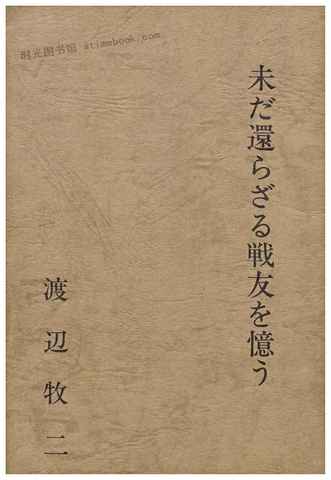 时光图书馆 atimebook.com
未だ還らざる戦友を憶う
渡辺牧二